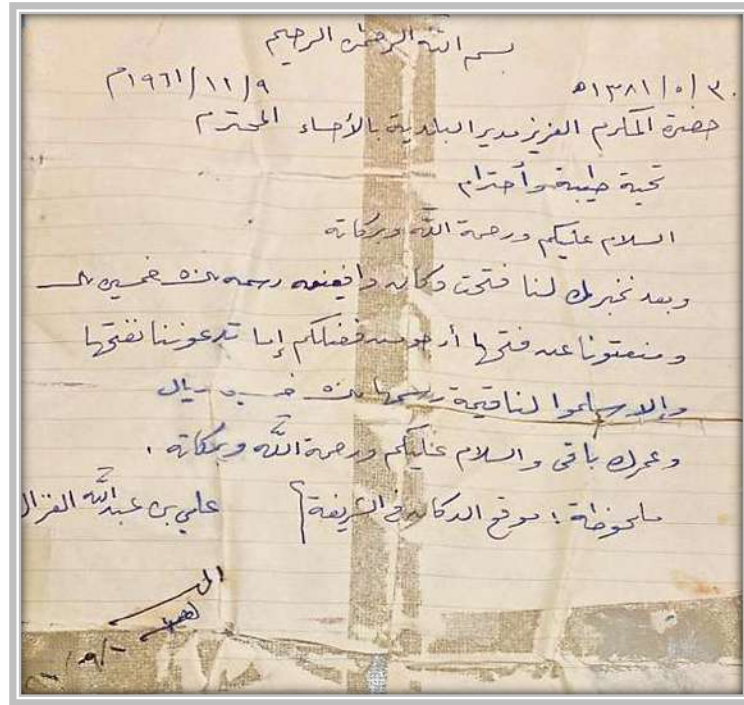 بسم الله الرحمن الرحيم
٣٠/٥/١٣٨١هـ ٩/١١/١٩٦١م
حضرة المكرم العزيز مدير البلدية بالأحساء المحترم
تحية طيبة وأحترام
السلام عليكم ورحمة الله وبركاته
وبعد نخبرك لنا فتحت دكان رسمه خمسين
ومنعتونا عن فتحها أرجو من فضلكم إما تدعوننا نفتحها
وإلا سلموا لنا قيمة رسمها ريال
وعمرك باقي والسلام عليكم ورحمة الله وبركاته .
ملحوظة : موقع الدكان في الشريفة علي بن عبد الله الغزال
الى